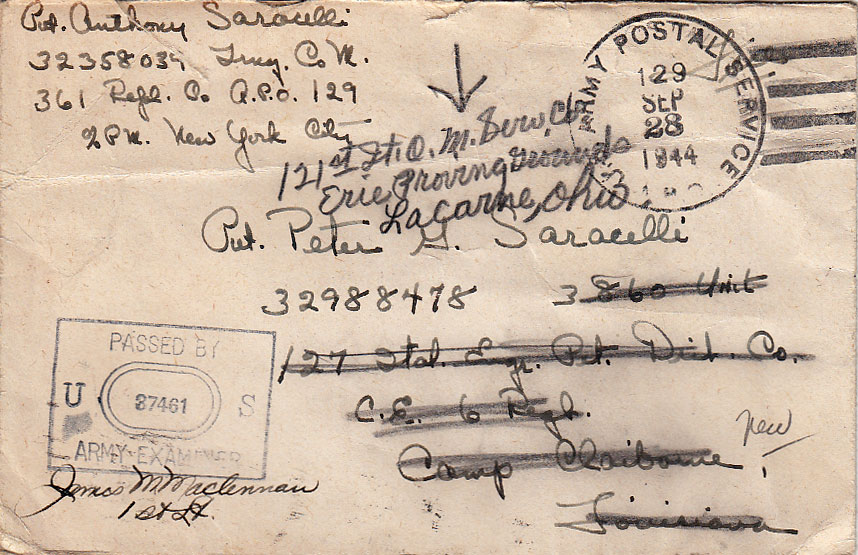 Pvt. Anthony Saracelli
32358039 Co M.
361 Regl. Co A.P.O. 129
% P.M. New York City
ARMY POSTAL SERVICE
129
SEP
28
1944
121st Q. M. Serv. Co
Erie Proving Grounds
Lacarne, Ohio
Pvt. Peter G. Saracelli
32988478 3860 Unit
127 Engr. Pet. Dist. Co.
C.E. 6 Regl.
Camp Claiborne
new
Louisiana
PASSED BY
U 37461 S
ARMY EXAMINER
James M Maclennan
1st Lt.